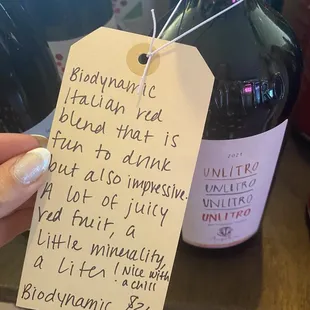 Biodynamic
Italian red
blend that is
fun to drink
but also impressive.
A lot of juicy
red fruit, a
little minerality,
a liter! Nice with
a chill
Biodynamic
2021
UNLITRO
UNLITRO
UNLITRO
UNLITRO